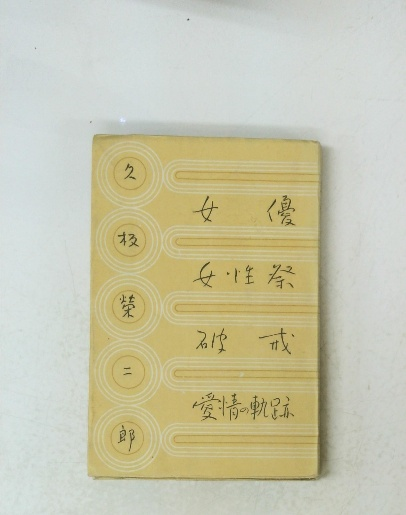 久板榮二郎
女優
女性祭
破戒
愛情の軌跡